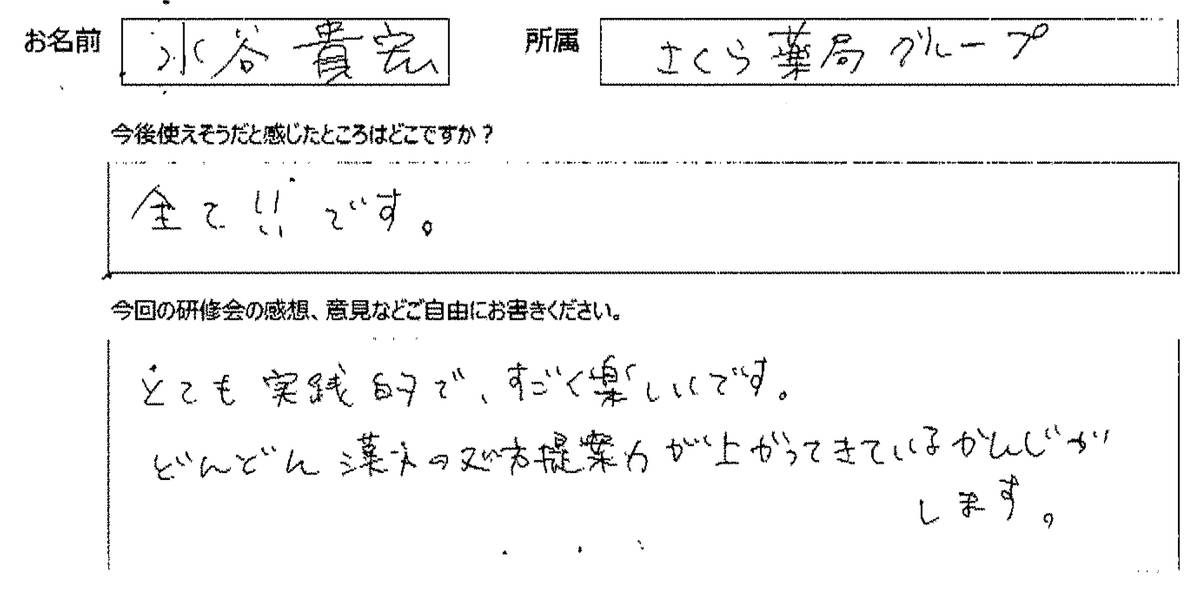 お名前 水谷 貴宏 所属 さくら薬局グループ
今後使えそうだと感じたところはどこですか？
全て!!です。
今回の研修会の感想、意見などご自由にお書きください。
とても実践的で、すごく楽しいです。
どんどん漢方の処方提案力が上がってきているかんじが
します。